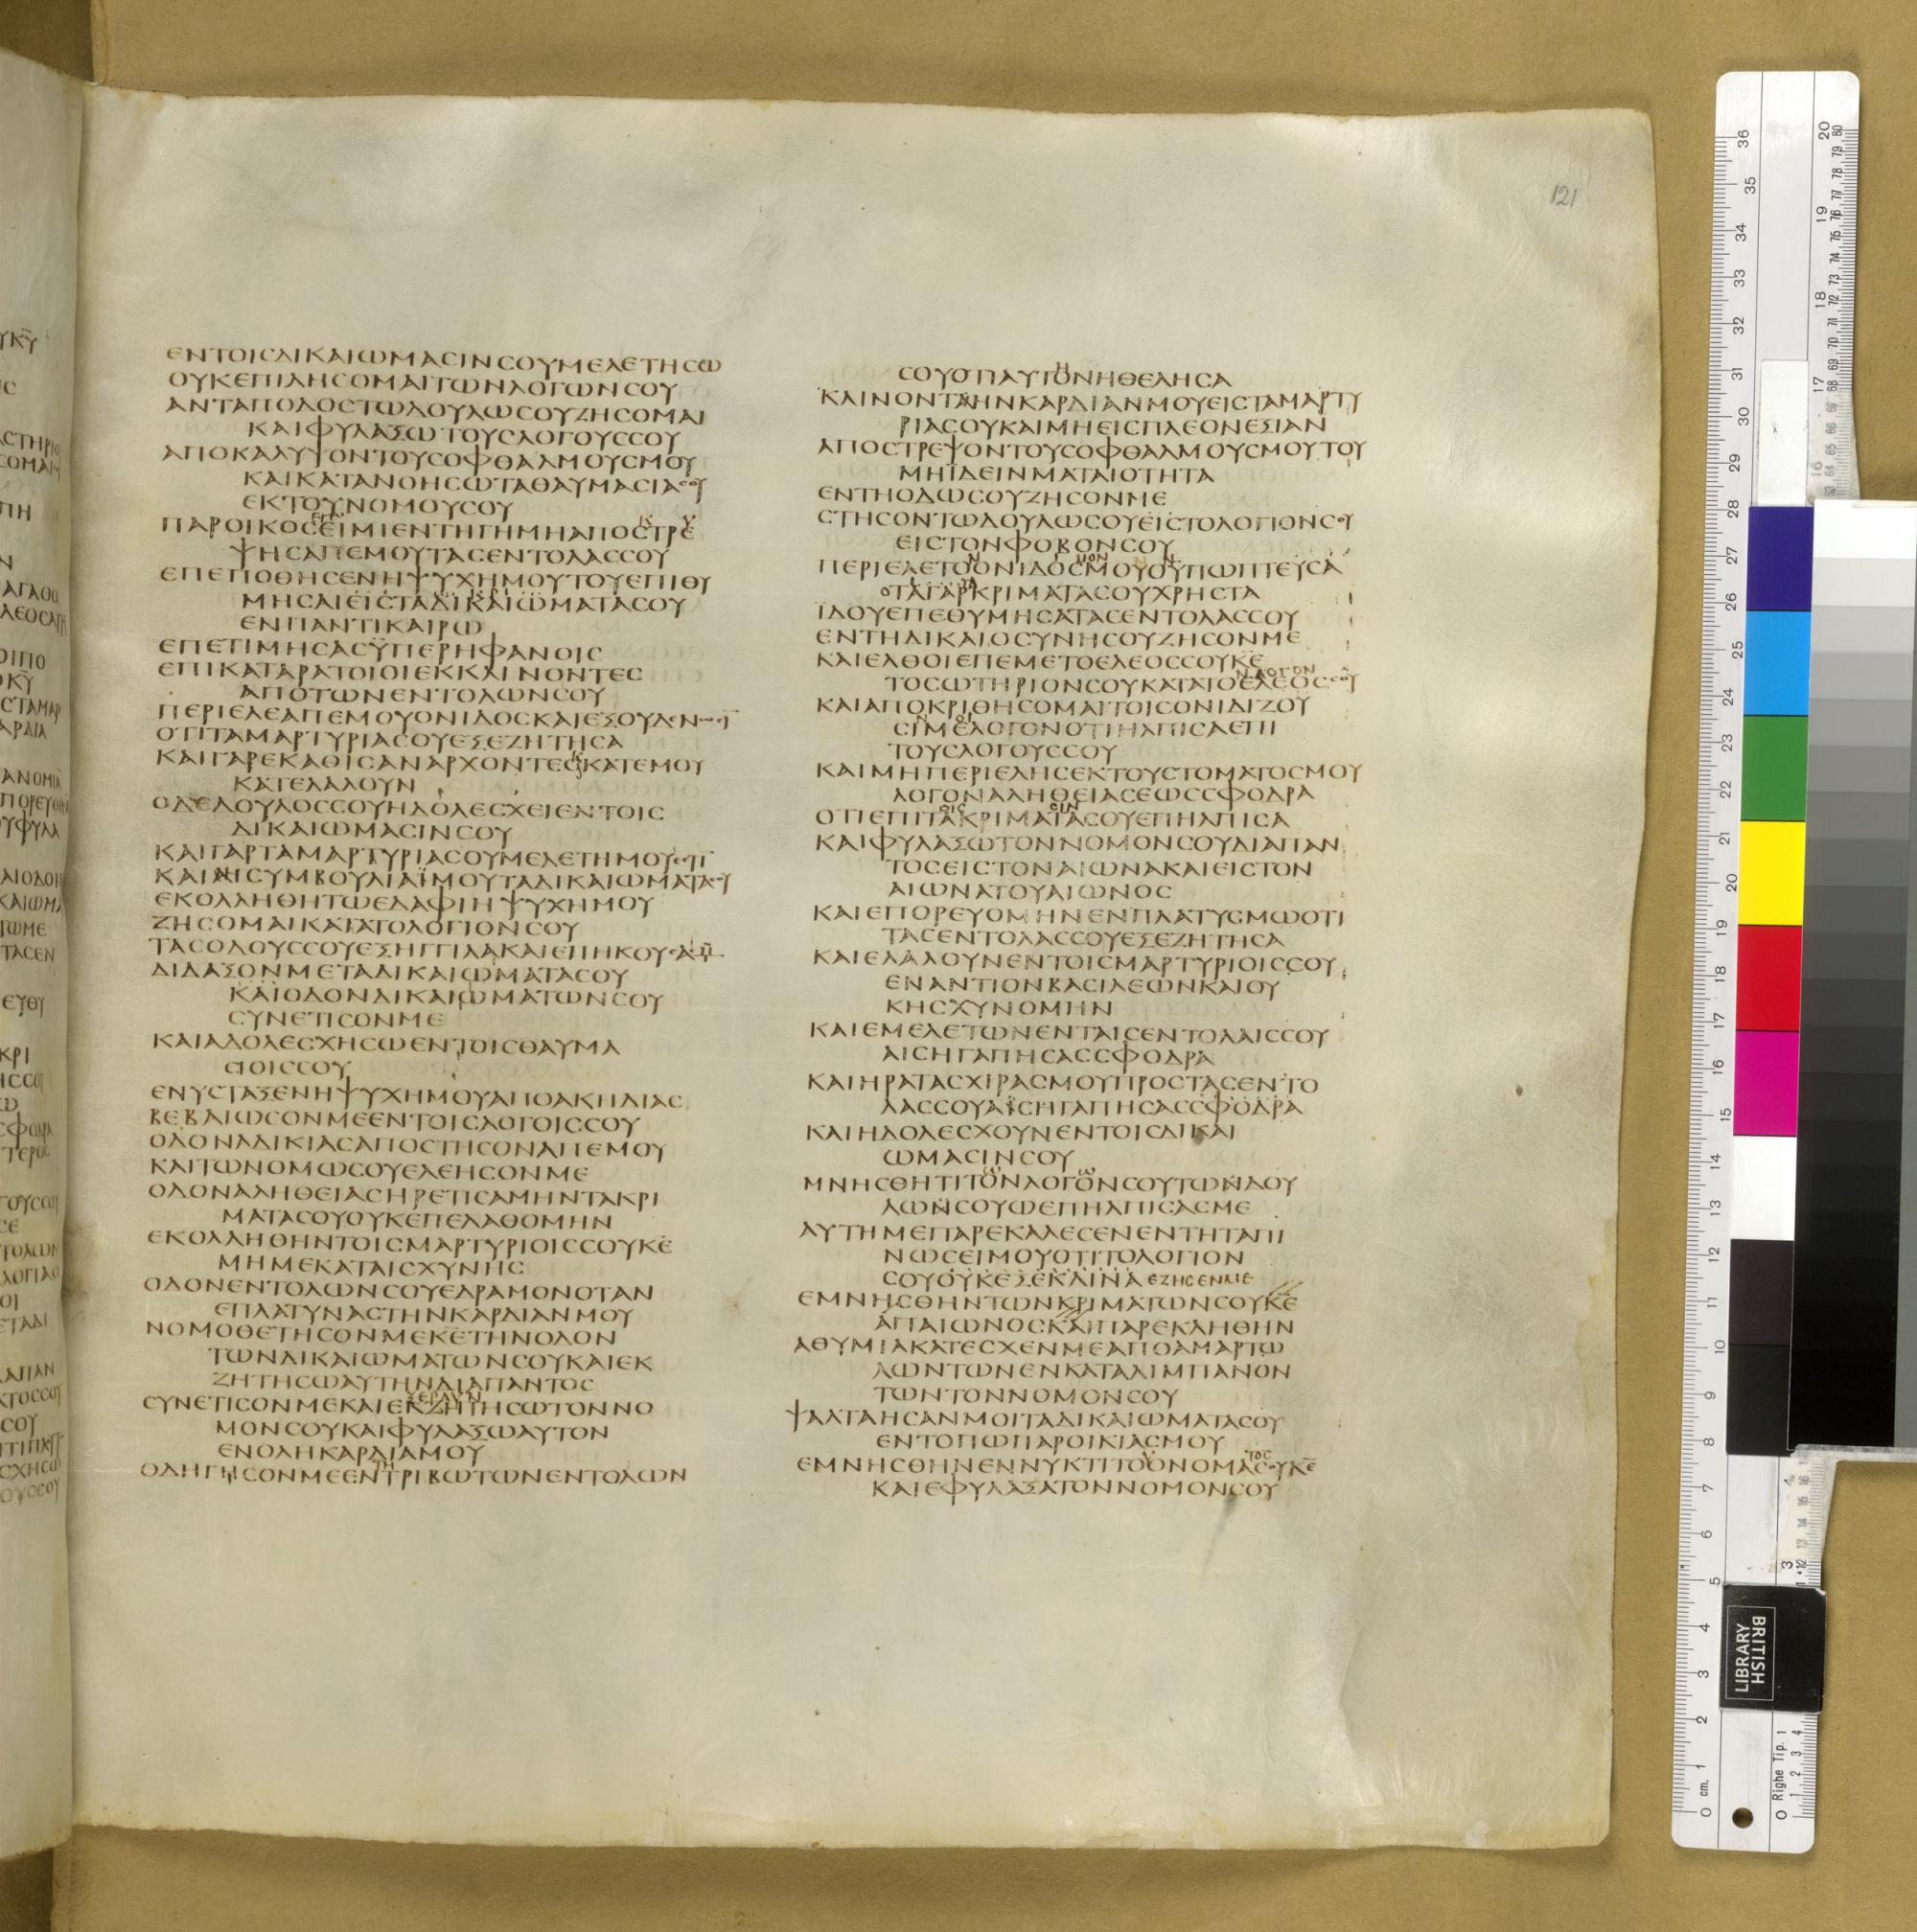 121
ΕΝΤΟΙCΔΙΚΑΙΩΜΑCΙΝCΟΥΜΕΛΕΤΗCΩ
ΟΥΚΕΠΙΛΗCΟΜΑΙΤΩΝΛΟΓΩΝCΟΥ
ΑΝΤΑΠΟΔΟCΤΩΔΟΥΛΩCΟΥΖΗCΟΜΑΙ
ΚΑΙΦΥΛΑΞΩΤΟΥCΛΟΓΟΥCCΟΥ
ΑΠΟΚΑΛΥΨΟΝΤΟΥCΟΦΘΑΛΜΟΥCΜΟΥ
ΚΑΙΚΑΤΑΝΟΗCΩΤΑΘΑΥΜΑCΙΑCΟΥ
ΕΚΤΟΥΝΟΜΟΥCΟΥ
ΠΑΡΟΙΚΟCΕΙΜΙΕΝΤΗΓΗΜΗΑΠΟCΤΡΕ
ΨΗCΑΠΕΜΟΥΤΑCΕΝΤΟΛΑCCΟΥ
ΕΠΕΠΟΘΗCΕΝΗΨΥΧΗΜΟΥΤΟΥΕΠΙΘΥ
ΜΗCΑΙΕΙCΤΑΔΙΚΑΙΩΜΑΤΑCΟΥ
ΕΝΠΑΝΤΙΚΑΙΡΩ
ΕΠΕΤΙΜΗCΑCΫΠΕΡΗΦΑΝΟΙC
ΕΠΙΚΑΤΑΡΑΤΟΙΟΙΕΚΚΛΙΝΟΝΤΕC
ΑΠΟΤΩΝΕΝΤΟΛΩΝCΟΥ
ΠΕΡΙΕΛΕΑΠΕΜΟΥΟΝΙΔΟCΚΑΙΕΞΟΥΔΕΝΩCΙ
ΟΤΙΤΑΜΑΡΤΥΡΙΑCΟΥΕΞΕΖΗΤΗCΑ
ΚΑΙΓΑΡΕΚΑΘΙCΑΝΑΡΧΟΝΤΕCΚΑΤΕΜΟΥ
ΚΑΤΕΛΑΛΟΥΝ
ΟΔΕΔΟΥΛΟCCΟΥΗΔΟΛΕCΧΕΙΕΝΤΟΙC
ΔΙΚΑΙΩΜΑCΙΝCΟΥ
ΚΑΙΓΑΡΤΑΜΑΡΤΥΡΙΑCΟΥΜΕΛΕΤΗΜΟΥΕCΤΙ
ΚΑΙΑΙCΥΜΒΟΥΛΙΑΙΜΟΥΤΑΔΙΚΑΙΩΜΑΤΑCΟΥ
ΕΚΟΛΛΗΘΗΤΩΕΔΑΦΙΗΨΥΧΗΜΟΥ
ΖΗCΟΜΑΙΚΑΤΑΤΟΛΟΓΙΟΝCΟΥ
ΤΑCΟΔΟΥCCΟΥΕΞΗΓΓΙΛΑΚΑΙΕΠΗΚΟΥCΑCΜΟΥ
ΔΙΔΑΞΟΝΜΕΤΑΔΙΚΑΙΩΜΑΤΑCΟΥ
ΚΑΙΟΔΟΝΔΙΚΑΙΩΜΑΤΩΝCΟΥ
CΥΝΕΤΙCΟΝΜΕ
ΚΑΙΑΔΟΛΕCΧΗCΩΕΝΤΟΙCΘΑΥΜΑ
CΙΟΙCCΟΥ
ΕΝΥCΤΑΞΕΝΗΨΥΧΗΜΟΥΑΠΟΑΚΗΔΙΑC
ΒΕΒΑΙΩCΟΝΜΕΕΝΤΟΙCΛΟΓΟΙCCΟΥ
ΟΔΟΝΑΔΙΚΙΑCΑΠΟCΤΗCΟΝΑΠΕΜΟΥ
ΚΑΙΤΩΝΟΜΩCΟΥΕΛΕΗCΟΝΜΕ
ΟΔΟΝΑΛΗΘΕΙΑCΗΡΕΤΙCΑΜΗΝΤΑΚΡΙ
ΜΑΤΑCΟΥΟΥΚΕΠΕΛΑΘΟΜΗΝ
ΕΚΟΛΛΗΘΗΝΤΟΙCΜΑΡΤΥΡΙΟΙCCΟΥΚΕ
ΜΗΜΕΚΑΤΑΙCΧΥΝΗC
ΟΔΟΝΕΝΤΟΛΩΝCΟΥΕΔΡΑΜΟΝΟΤΑΝ
ΕΠΛΑΤΥΝΑCΤΗΝΚΑΡΔΙΑΝΜΟΥ
ΝΟΜΟΘΕΤΗCΟΝΜΕΚΕΤΗΝΟΔΟΝ
ΤΩΝΔΙΚΑΙΩΜΑΤΩΝCΟΥΚΑΙΕΚ
ΖΗΤΗCΩΑΥΤΗΝΔΙΑΠΑΝΤΟC
CΥΝΕΤΙCΟΝΜΕΚΑΙΕΚΖΗΤΗCΩΤΟΝΝΟ
ΜΟΝCΟΥΚΑΙΦΥΛΑΞΩΑΥΤΟΝ
ΕΝΟΛΗΚΑΡΔΙΑΜΟΥ
ΟΔΗΓΗCΟΝΜΕΕΝΤΡΙΒΩΤΩΝΕΝΤΟΛΩΝ
CΟΥΟΤΙΑΥΤΟΝΗΘΕΛΗCΑ
ΚΛΙΝΟΝΤΗΝΚΑΡΔΙΑΝΜΟΥΕΙCΤΑΜΑΡΤΥ
ΡΙΑCΟΥΚΑΙΜΗΕΙCΠΛΕΟΝΕΞΙΑΝ
ΑΠΟCΤΡΕΨΟΝΤΟΥCΟΦΘΑΛΜΟΥCΜΟΥΤΟΥ
ΜΗΪΔΕΙΝΜΑΤΑΙΟΤΗΤΑ
ΕΝΤΗΟΔΩCΟΥΖΗCΟΝΜΕ
CΤΗCΟΝΤΩΔΟΥΛΩCΟΥΕΙCΤΟΛΟΓΙΟΝCΟΥ
ΕΙCΤΟΝΦΟΒΟΝCΟΥ
ΠΕΡΙΕΛΕΤΟΟΝΙΔΟCΜΟΥΟΥΠΩΠΤΕΥCΑ
ΟΤΑΓΑΡΚΡΙΜΑΤΑCΟΥΧΡΗCΤΑ
ΪΔΟΥΕΠΕΘΥΜΗCΑΤΑCΕΝΤΟΛΑCCΟΥ
ΕΝΤΗΔΙΚΑΙΟCΥΝΗCΟΥΖΗCΟΝΜΕ
ΚΑΙΕΛΘΟΙΕΠΕΜΕΤΟΕΛΕΟCCΟΥΚΕ
ΤΟCΩΤΗΡΙΟΝCΟΥΚΑΤΑΤΟΕΛΕΟCCΟΥ
ΚΑΙΑΠΟΚΡΙΘΗCΟΜΑΙΤΟΙCΟΝΙΔΙΖΟΥ
CΙΜΕΛΟΓΟΝΟΤΙΗΛΠΙCΑΕΠΙ
ΤΟΥCΛΟΓΟΥCCΟΥ
ΚΑΙΜΗΠΕΡΙΕΛΗCΕΚΤΟΥCΤΟΜΑΤΟCΜΟΥ
ΛΟΓΟΝΑΛΗΘΕΙΑCΕΩCCΦΟΔΡΑ
ΟΤΙΕΠΙΤΑΚΡΙΜΑΤΑCΟΥΕΠΗΛΠΙCΑ
ΚΑΙΦΥΛΑΞΩΤΟΝΝΟΜΟΝCΟΥΔΙΑΠΑΝ
ΤΟCΕΙCΤΟΝΑΙΩΝΑΚΑΙΕΙCΤΟΝ
ΑΙΩΝΑΤΟΥΑΙΩΝΟC
ΚΑΙΕΠΟΡΕΥΟΜΗΝΕΝΠΛΑΤΥCΜΩΟΤΙ
ΤΑCΕΝΤΟΛΑCCΟΥΕΞΕΖΗΤΗCΑ
ΚΑΙΕΛΑΛΟΥΝΕΝΤΟΙCΜΑΡΤΥΡΙΟΙCCΟΥ
ΕΝΑΝΤΙΟΝΒΑCΙΛΕΩΝΚΑΙΟΥ
ΚΗCΧΥΝΟΜΗΝ
ΚΑΙΕΜΕΛΕΤΩΝΕΝΤΑΙCΕΝΤΟΛΑΙCCΟΥ
ΑΙCΗΓΑΠΗCΑCCΦΟΔΡΑ
ΚΑΙΗΡΑΤΑCΧΙΡΑCΜΟΥΠΡΟCΤΑCΕΝΤΟ
ΛΑCCΟΥΑΙCΗΓΑΠΗCΑCCΦΟΔΡΑ
ΚΑΙΗΔΟΛΕCΧΟΥΝΕΝΤΟΙCΔΙΚΑΙ
ΩΜΑCΙΝCΟΥ
ΜΝΗCΘΗΤΙΤΟΝΛΟΓΟΝCΟΥΤΩΝΔΟΥ
ΛΩΝCΟΥΩΕΠΗΛΠΙCΑCΜΕ
ΑΥΤΗΜΕΠΑΡΕΚΑΛΕCΕΝΕΝΤΗΤΑΠΙ
ΝΩCΕΙΜΟΥΟΤΙΤΟΛΟΓΙΟΝ
CΟΥΟΥΚΕΞΕΚΛΙΝΑΕΖΗCΕΝΜΕ
ΕΜΝΗCΘΗΝΤΩΝΚΡΙΜΑΤΩΝCΟΥΚΕ
ΑΠΑΙΩΝΟCΚΑΙΠΑΡΕΚΛΗΘΗΝ
ΑΘΥΜΙΑΚΑΤΕCΧΕΝΜΕΑΠΟΑΜΑΡΤΩ
ΛΩΝΤΩΝΕΝΚΑΤΑΛΙΜΠΑΝΟΝ
ΤΩΝΤΟΝΝΟΜΟΝCΟΥ
ΨΑΛΤΑΗCΑΝΜΟΙΤΑΔΙΚΑΙΩΜΑΤΑCΟΥ
ΕΝΤΟΠΩΠΑΡΟΙΚΙΑCΜΟΥ
ΕΜΝΗCΘΗΝΕΝΝΥΚΤΙΤΟΟΝΟΜΑCΟΥΚΕ
ΚΑΙΕΦΥΛΑΞΑΤΟΝΝΟΜΟΝCΟΥ
BRITISH
LIBRARY
Righe Tip.
cm.